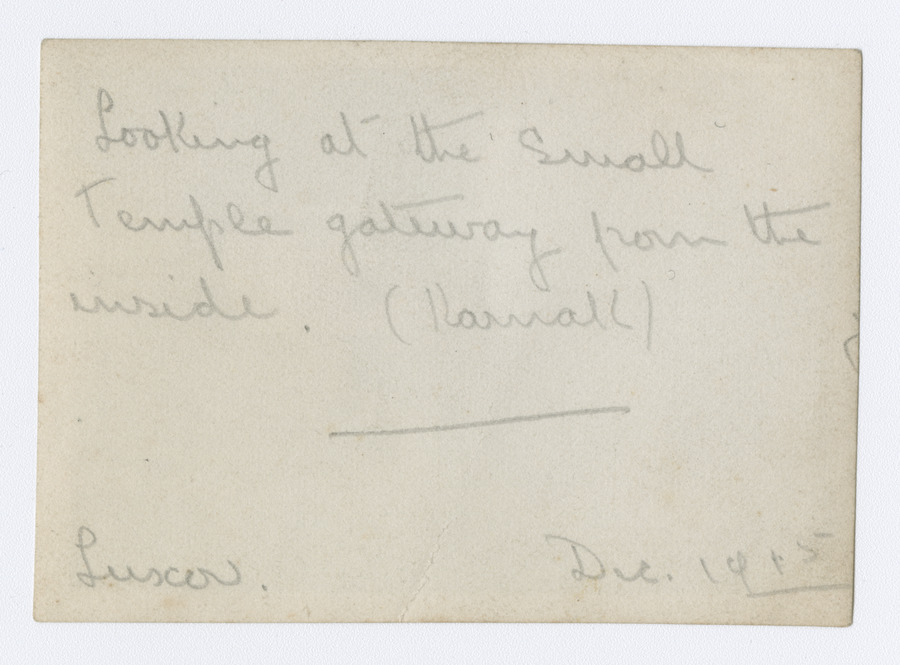 Looking at the Small
Temple gateway from the
inside. (Karnak)
Luxor. Dec. 1915